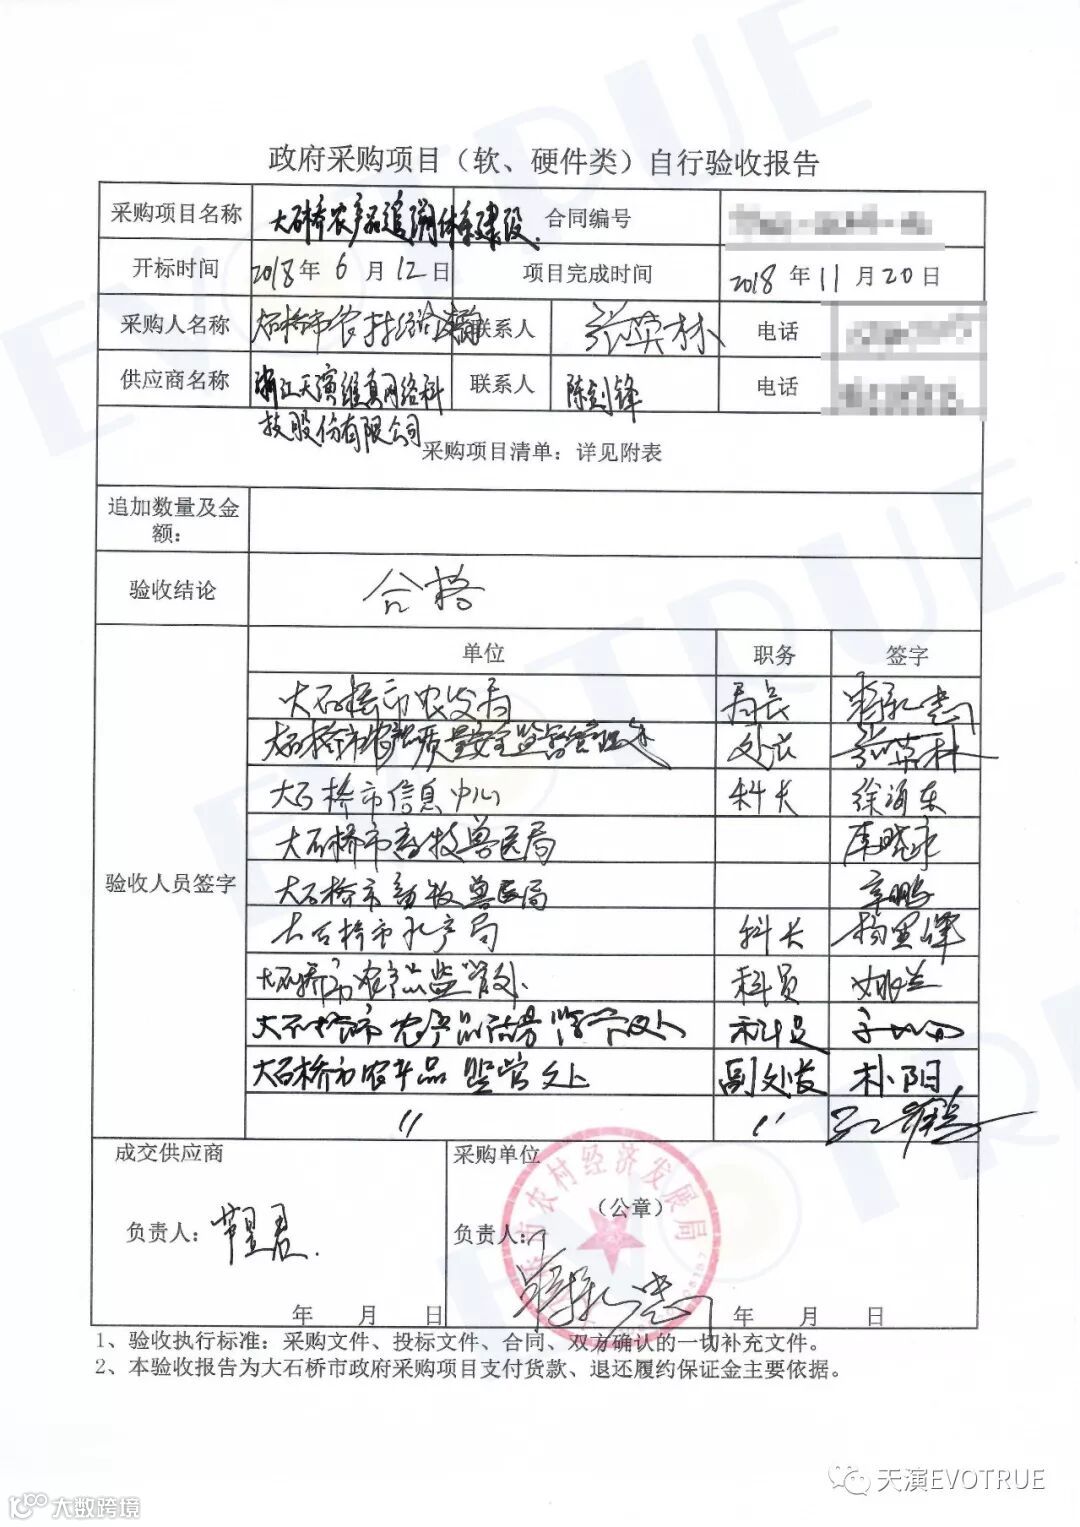 政府采购项目（软、硬件类）自行验收报告
采购项目名称 大石桥农产品追溯体系建设 合同编号
开标时间 2018年6月12日 项目完成时间 2018年11月20日
采购人名称 大石桥市农村经济 联系人 张英林 电话
供应商名称 浙江天演维真网络科 联系人 陈剑锋 电话
技股份有限公司
采购项目清单：详见附表
追加数量及金
额：
验收结论 合格
单位 职务 签字
大石桥市农发局 局长
大石桥市农产品质量安全监督管理处 处长 张英林
大石桥市信息中心 科长 徐海东
大石桥市畜牧兽医局
验收人员签字
大石桥市畜牧兽医局 章鹏
大石桥市水产局 科长
大石桥市农产品监管处 科员
大石桥市农产品质量监管处 科员
大石桥市农产品监管处 副处长 朴阳
〃 〃
成交供应商 采购单位
（公章）
农村经济发展局
负责人： 负责人：
年 月 日 年 月 日
1、验收执行标准：采购文件、投标文件、合同、双方确认的一切补充文件。
2、本验收报告为大石桥市政府采购项目支付货款、退还履约保证金主要依据。
天演EVOTRUE
大数跨境
EVOTRUE
EVOTRUE
EVOTRUE